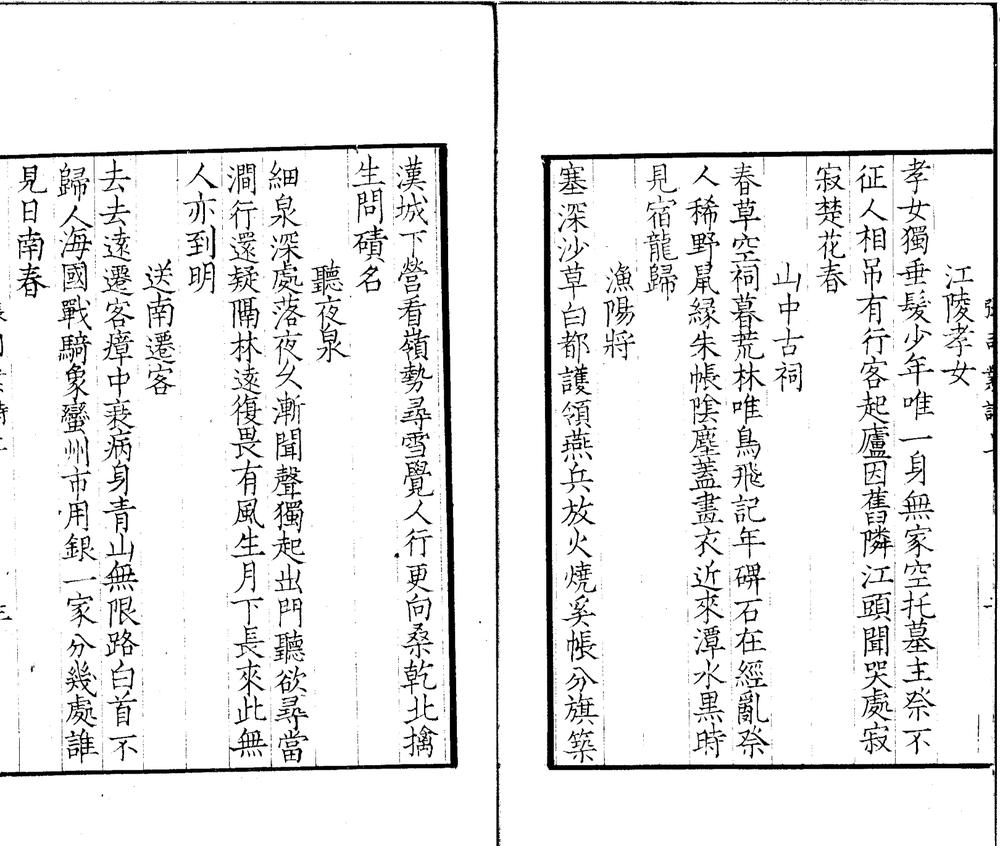 江陵孝女
孝女獨垂髮少年唯一身無家空托墓主祭不
征人相吊有行客起廬因舊隣江頭聞哭處寂
寂楚花春
山中古祠
春草空祠暮荒林唯鳥飛記年碑石在經亂祭
人稀野鼠緣朱帳陰塵蓋畫衣近來潭水黒時
見宿龍歸
漁陽將
塞深沙草白都護領燕兵放火燒奚帳分旗築
漢城下營看嶺勢尋雪覺人行更向桑乾北擒
生問磧名
聽夜泉
細泉深處落夜久漸聞聲獨起出門聽欲尋當
澗行還疑隔林遠復畏有風生月下長來此無
人亦到明
送南遷客
去去遠遷客瘴中衰病身青山無限路白首不
歸人海國戰騎象蠻州市用銀一家分幾處誰
見日南春